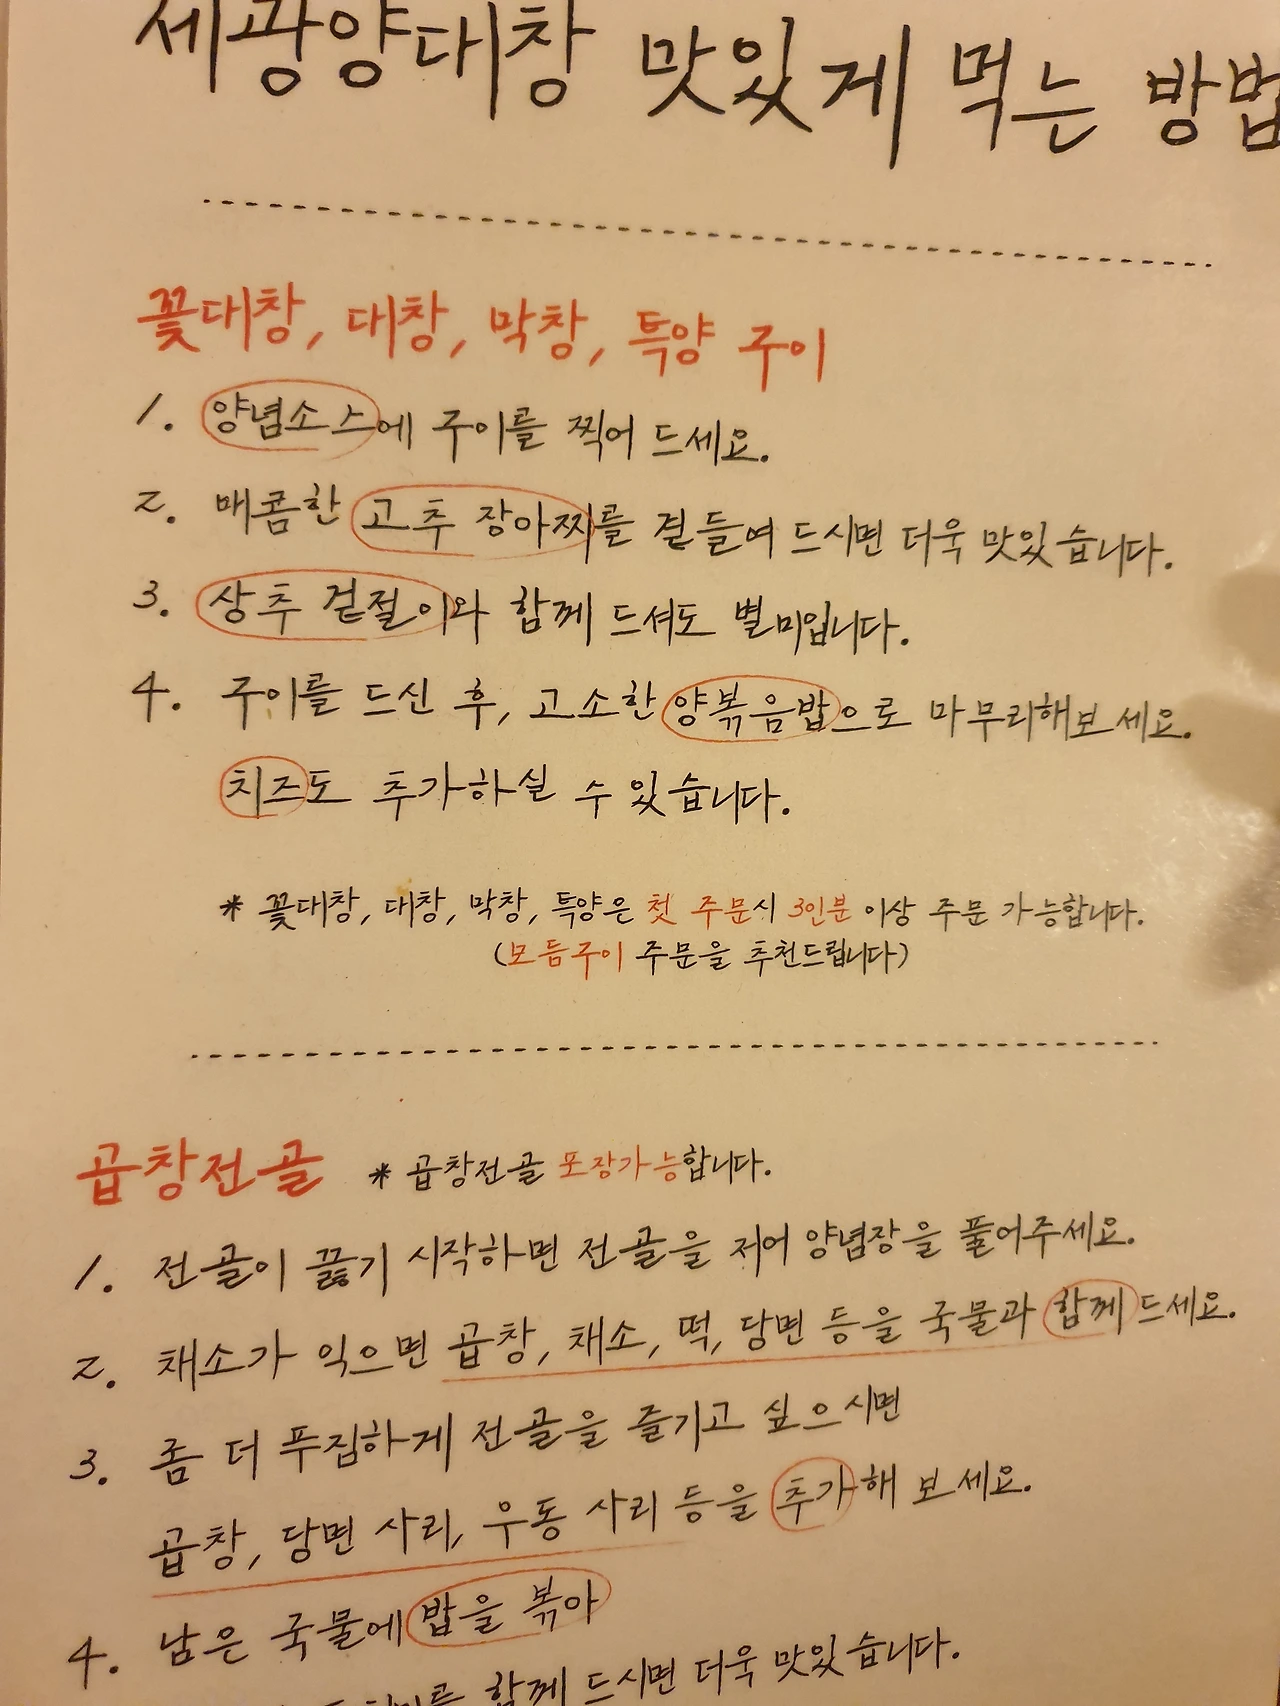 세광양대창 맛있게 먹는 방법
꽃대창, 대창, 막창, 특양 구이
1. 양념소스에 구이를 찍어 드세요.
2. 매콤한 고추 장아찌를 곁들여 드시면 더욱 맛있습니다.
3. 상추 겉절이와 함께 드셔도 별미입니다.
4. 구이를 드신 후, 고소한 양볶음밥으로 마무리해보세요.
치즈도 추가하실 수 있습니다.
* 꽃대창, 대창, 막창, 특양은 첫 주문시 3인분 이상 주문 가능합니다.
(모듬구이 주문을 추천드립니다)
곱창전골 * 곱창전골 포장가능합니다.
1. 전골이 끓기 시작하면 전골을 저어 양념장을 풀어주세요.
2. 채소가 익으면 곱창, 채소, 떡, 당면 등을 국물과 함께 드세요.
3. 좀 더 푸집하게 전골을 즐기고 싶으시면
곱창, 당면 사리, 우동 사리 등을 추가해 보세요.
4. 남은 국물에 밥을 볶아
함께 드시면 더욱 맛있습니다.